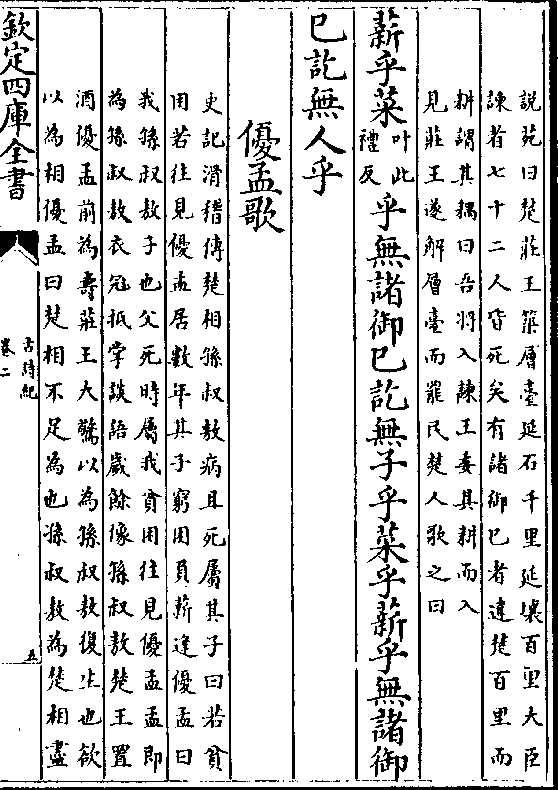 說苑曰楚莊王築層臺延石千里延壤百里大臣
諫者七十二人皆死矣有諸御已者違楚百里而
耕謂其耦曰吾將入諫王委其耕而入
見莊王遂解層臺而罷民楚人歌之曰
薪乎菜叶此禮反乎無諸御已訖無子乎菜乎薪乎無諸御
已訖無人乎
優孟歌
史記滑稽傳楚相孫叔敖病且死屬其子曰若貧
困若往見優孟居數年其子窮困負薪逢優孟曰
我孫叔敖子也父死時屬我貧困往見優孟孟即
為孫叔敖衣冠抵掌談語歲餘像孫叔敖楚王置
酒優孟前為壽莊王大驚以為孫叔敖復生也欲
以為相優孟曰楚相不足為也孫叔敖為楚相盡
欽定四庫全書
古詩紀
卷二
五